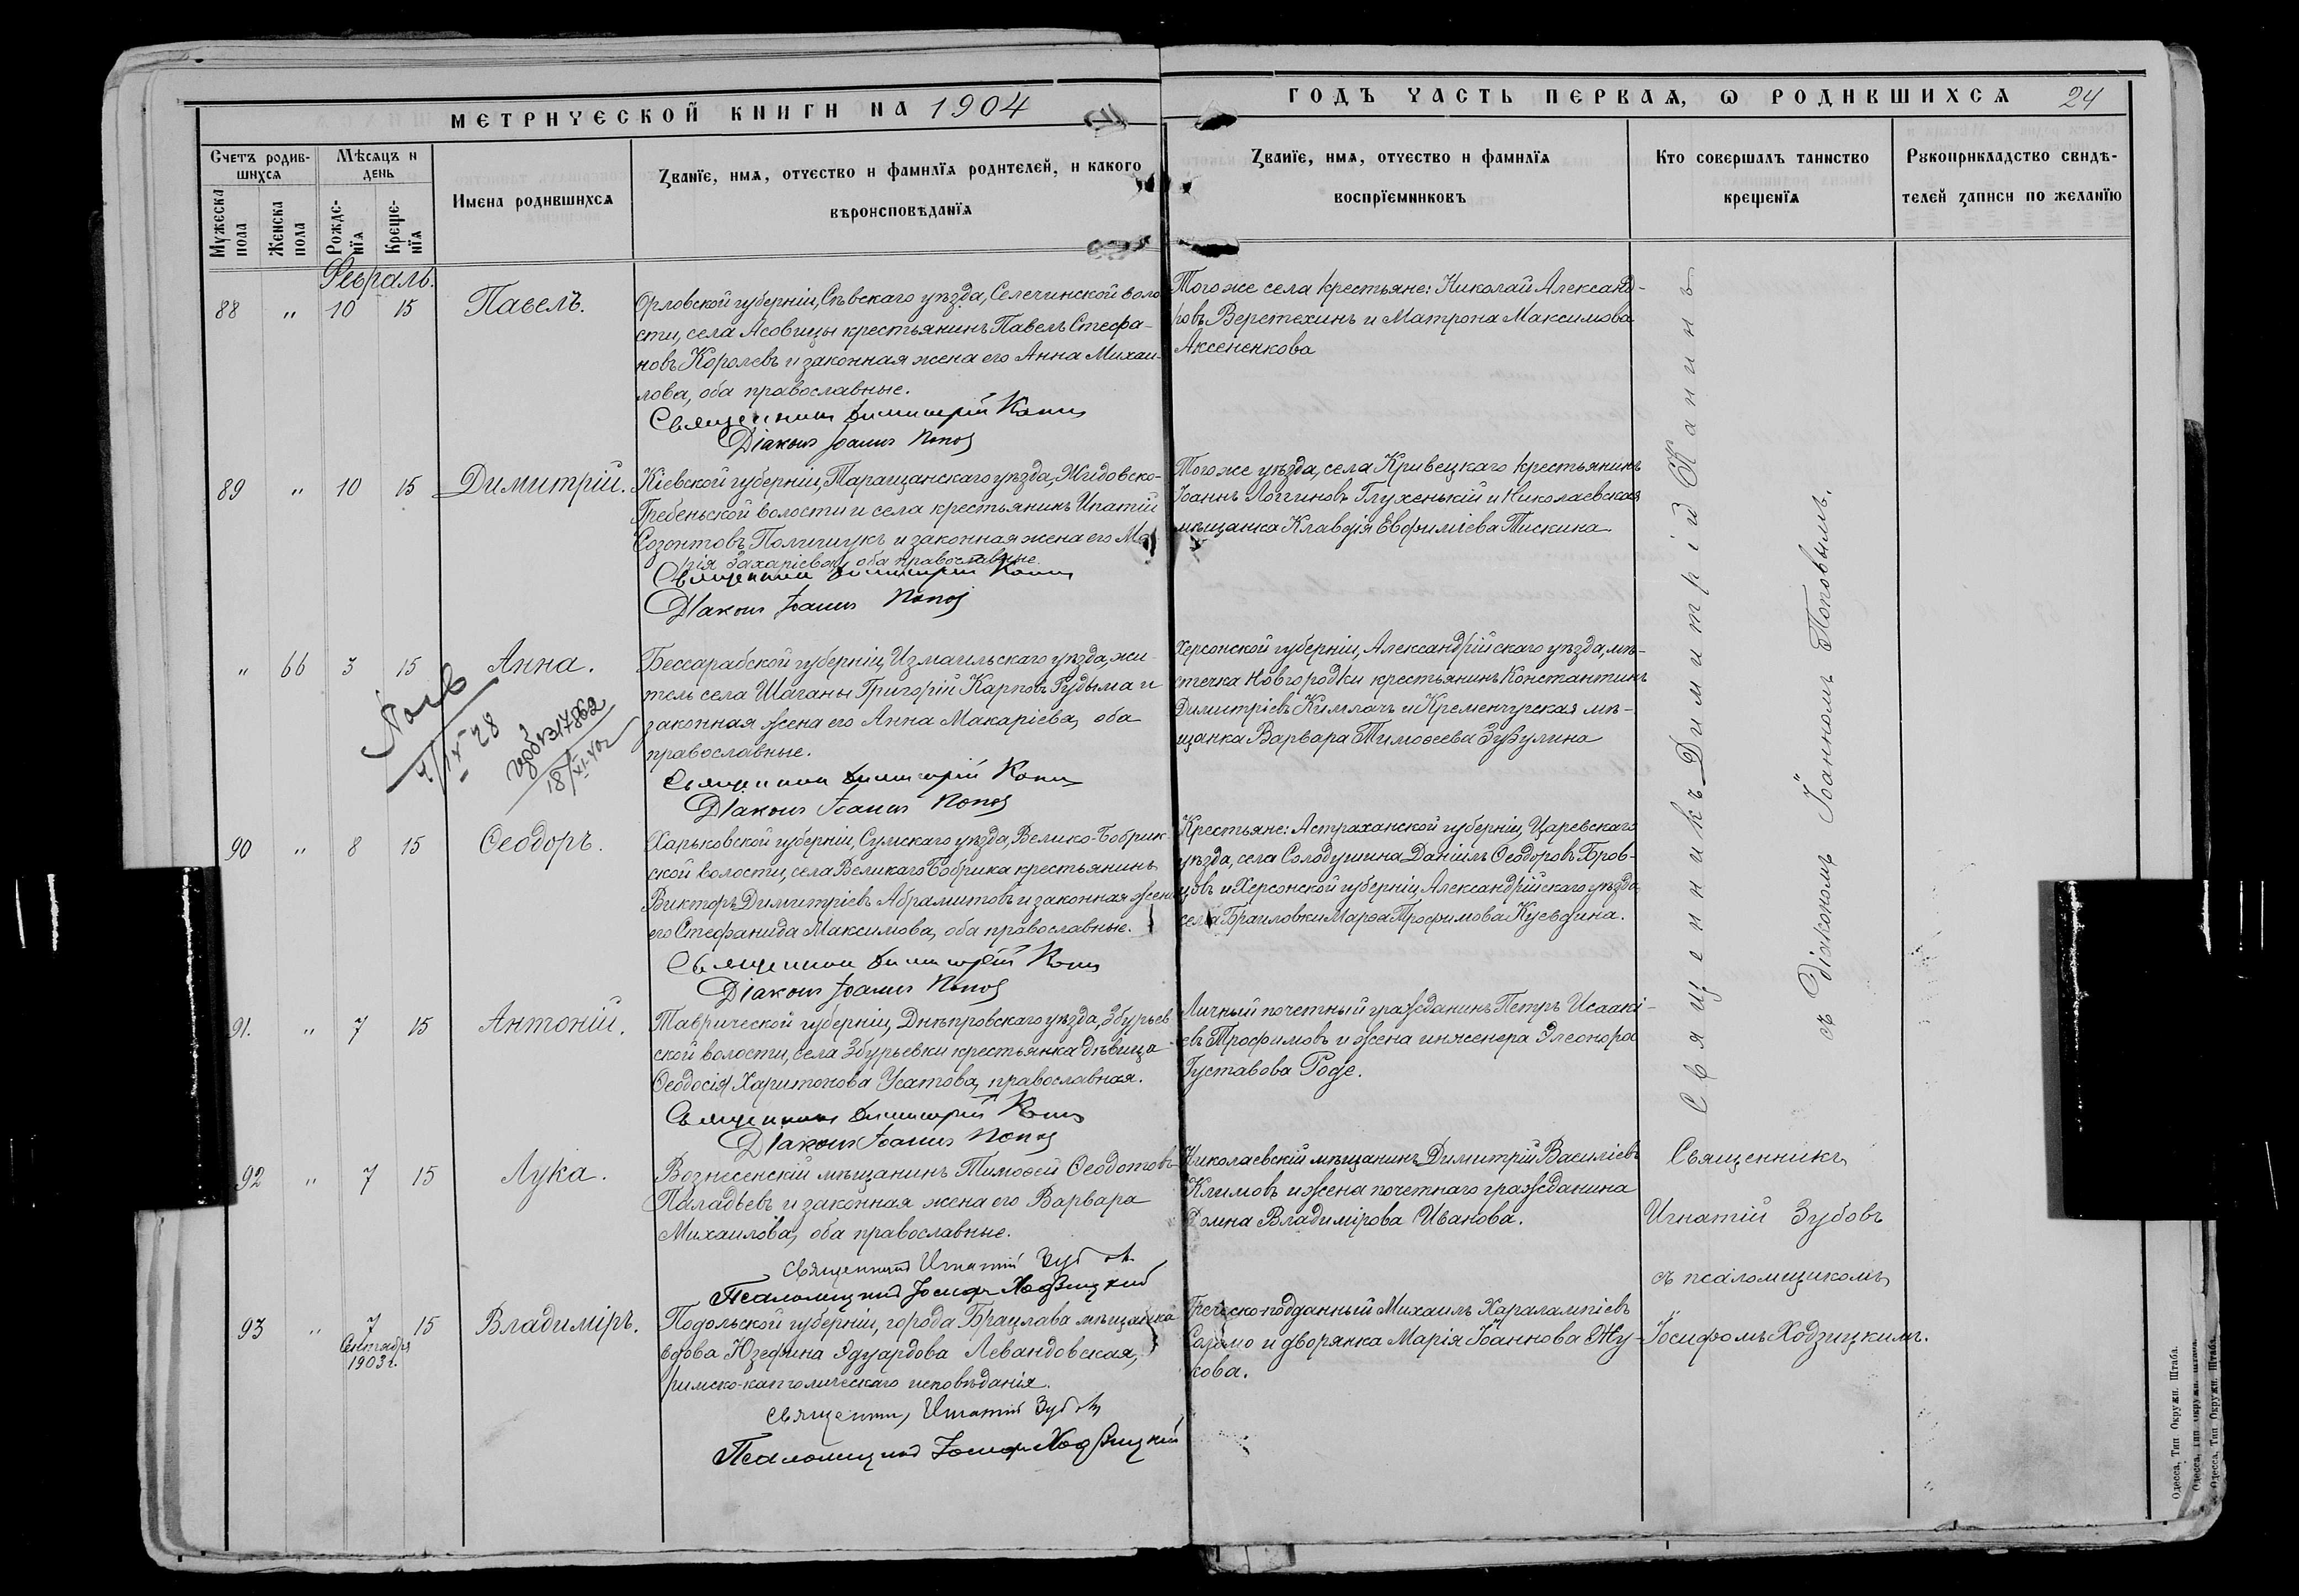 МЕТРИЧЕСКОЙ КНИГИ НА 1904
ГОДЪ ЧАСТЬ ПЕРВАЯ, Ѡ РОДИВШИХСЯ 24
Счетъ родив-
шихся
Мужеска пола
Женска пола
Мѣсяцъ и
день
Рожде-
нїя
Креще-
нїя
Имена родившихся
Званїе, имя, отчество и фамилїя родителей, и какого
вѣроисповѣданїя
Званїе, имя, отчество и фамилїя
воспрїемниковъ
Кто совершалъ таинство
крещенїя
Рукоприкладство свидѣ-
телей записи по желанїю
Февраль.
88 " 10 15 Павелъ.
Орловской губерніи, Сѣвскаго уѣзда, Селечинской воло
сти, села Асовицы крестьянинъ Павелъ Стефа-
новъ Королевъ и законная жена его Анна Михаи-
лова, оба православные.
Священникъ Димитрій Канинъ
Діаконъ Іоаннъ Поповъ
Того же села крестьяне: Николай Александ-
ровъ Верстехинъ и Матрона Максимова
Аксененкова
89 " 10 15 Димитрій.
Кіевской губерніи, Таращанскаго уѣзда, Жидовско-
Гребеньской волости и села крестьянинъ Ипатій
Созонтовъ Полищукъ и законная жена его Ма
рія Захаріева, оба православные.
Священникъ Димитрій Канинъ
Діаконъ Іоаннъ Поповъ
Того же уѣзда, села Кривецкаго крестьянинъ
Іоаннъ Логгиновъ Глухенькій и Николаевская
мѣщанка Клавдія Евфиміева Тискина
" 66 3 15 Анна.
Бессарабской губерніи, Измаильскаго уѣзда, жи-
тель села Шаганы Григорій Карповъ Гудыма и
законная жена его Анна Макаріева, оба
православные.
Священникъ Димитрій Канинъ
Діаконъ Іоаннъ Поповъ
Херсонской губерніи, Александрійскаго уѣзда, мѣ-
стечка Новгородки крестьянинъ Константинъ
Димитріевъ Кимлачъ и Кременчугская мѣ-
щанка Варвара Тимофеева Зубулина
90 " 8 15 Ѳеодоръ.
Харьковской губерніи, Сумскаго уѣзда, Велико-Бобрик
ской волости, села Великаго Бобрика крестьянинъ
Викторъ Димитріевъ Абрамитовъ и законная жена
его Стефанида Максимова, оба православные.
Священникъ Димитрій Канинъ
Діаконъ Іоаннъ Поповъ
Крестьяне: Астраханской губерніи, Царевскаго
уѣзда, села Солодушина Даніилъ Ѳеодоровъ Бров-
цовъ и Херсонской губерніи, Александрійскаго уѣзда
села Браиловки Марѳа Трофимова
91. " 7 15 Антоній.
Таврической губерніи, Днѣпровскаго уѣзда, Збурьев
ской волости, села Збурьевки крестьянка дѣвица
Ѳеодосія Харитонова Усатова, православная.
Священникъ Димитрій Канинъ
Діаконъ Іоаннъ Поповъ
Личный почетный гражданинъ Петръ Исаакі-
евъ Трофимовъ и жена инженера Элеонора
Густавова Роде.
Священникъ Димитрій Канинъ
съ діакономъ Іоанномъ Поповымъ.
92 " 7 15 Лука.
Вознесенскій мѣщанинъ Тимоѳей Ѳеодотовъ
Паладьевъ и законная жена его Варвара
Михаилова, оба православные.
Священникъ Игнатій Зубовъ
Псаломщикъ Іосифъ Ходзицкій
Николаевскій мѣщанинъ Димитрій Василіевъ
Климовъ и жена почетнаго гражданина
Домна Владимірова Иванова.
Священникъ
Игнатій Зубовъ
съ псаломщикомъ
Іосифомъ Ходзицкимъ.
93 " 7 15 Владиміръ.
Сентября
1903 г.
Подольской губерніи, города Брацлава мѣщанка
вдова Юзефина Эдуардова Левандовская,
римско-католическаго исповѣданія.
Священникъ Игнатій Зубовъ
Псаломщикъ Іосифъ Ходзицкій
Греческоподданный Михаилъ Харалампіевъ
и дворянка Марія Іоаннова Жу-
кова.
Одесса, Тип. Окружн. Штаба.
Одесса, Тип. Окружн. Штаба.
Одесса, Тип. Окружн. Штаба.